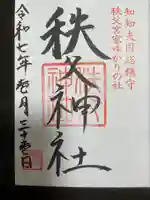 知知夫国総鎮守
秩父宮家ゆかりの社
秩父神社
令和七年壱月三十壱日